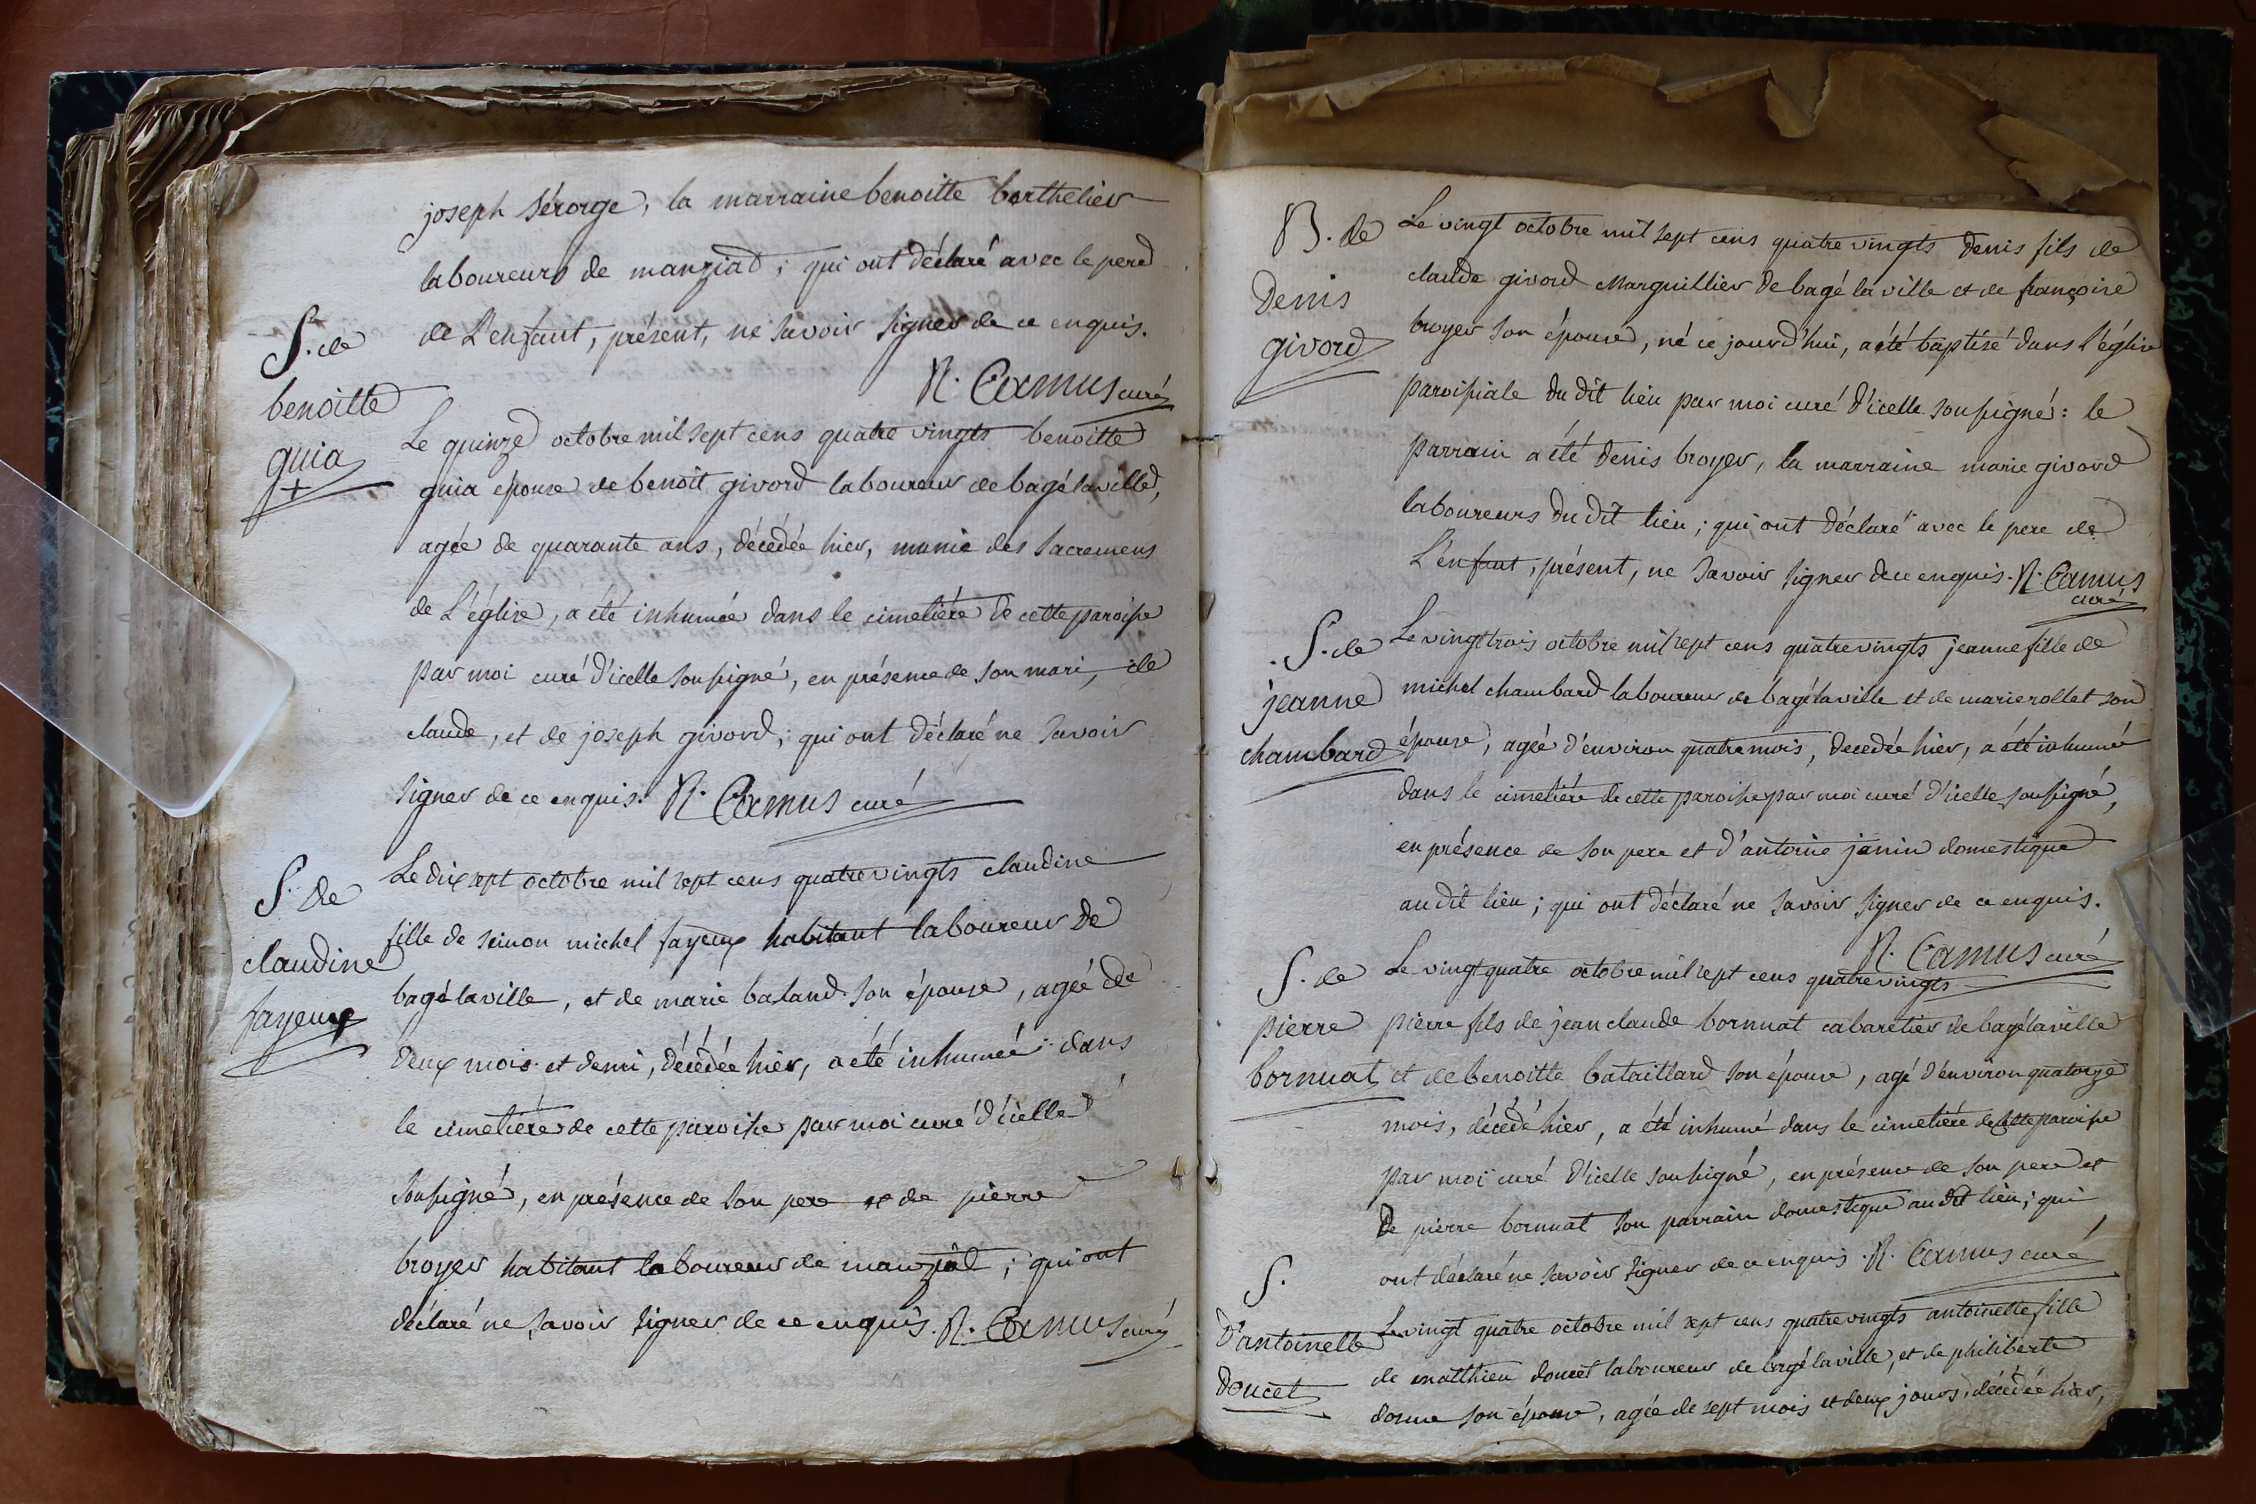 joseph sérorge, la marraine benoitte barthelier
laboureurs de manziat; qui ont déclaré avec le pere
de L'enfant, présent, ne savoir signer de ce enquis.
N. Camus curé
S. de
benoitte
guia
Le quinze octobre mil sept cens quatre vingts benoitte
guia épouse de benoît givord laboureur de bagé la ville,
agée de quarante ans, décédée hier, munie des sacremens
de L'église, a été inhumée dans le cimetière de cette paroisse
par moi curé d'icelle soussigné, en présence de son mari, de
claude, et de joseph givord; qui ont déclaré ne savoir
signer de ce enquis. N. Camus curé
S. de
claudine
fayeux
Le dix sept octobre mil sept cens quatre vingts claudine
fille de michel fayeux habitant laboureur de
bagé la ville, et de marie baland son épouse, agée de
deux mois et demi, décédée hier, a été inhumée dans
le cimetière de cette paroisse par moi curé d'icelle
soussigné, en présence de son pere et de pierre
broyer habitant laboureur de manziat; qui ont
déclaré ne savoir signer de ce enquis. N. Camus curé
B. de
Denis
givord
Le vingt octobre mil sept cens quatre vingts denis fils de
claude givord Marguillier de bagé la ville et de françoise
broyer son épouse, né ce jourd'hui, a été baptisé dans l'église
paroissiale du dit lieu par moi curé d'icelle soussigné: le
parrain a été denis broyer, la marraine marie givord
laboureurs du dit lieu; qui ont déclaré avec le pere de
L'enfant, présent, ne savoir signer de ce enquis. N. Camus
curé
S. de
jeanne
chambard
Le vingt trois octobre mil sept cens quatre vingts jeanne fille de
michel chambard laboureur de bagé la ville et de marie rollet son
épouse, agée d'environ quatre mois, decedée hier, a été inhumée
dans le cimetière de cette paroisse par moi curé d'icelle soussigné,
en présence de son pere et d'antoine janin domestique
au dit lieu; qui ont déclaré ne savoir signer de ce enquis.
N. Camus curé
S. de
pierre
bornuat
Le vingt quatre octobre mil sept cens quatre vingts
pierre fils de jean claude bornuat cabaretier de bagé la ville
et de benoitte bataillard son épouse, agé d'environ quatorze
mois, décédé hier, a été inhumé dans le cimetière de cette paroisse
par moi curé d'icelle soussigné, en présence de son pere et
de pierre bornuat son parrain domestique au dit lieu; qui
ont déclaré ne savoir signer de ce enquis. N. Camus curé
S.
d'antoinette
doucet
Le vingt quatre octobre mil sept cens quatre vingts antoinette fille
de matthieu doucet laboureur de bagé la ville, et de philiberte
son épouse, agée de sept mois et deux jours, décédée hier,